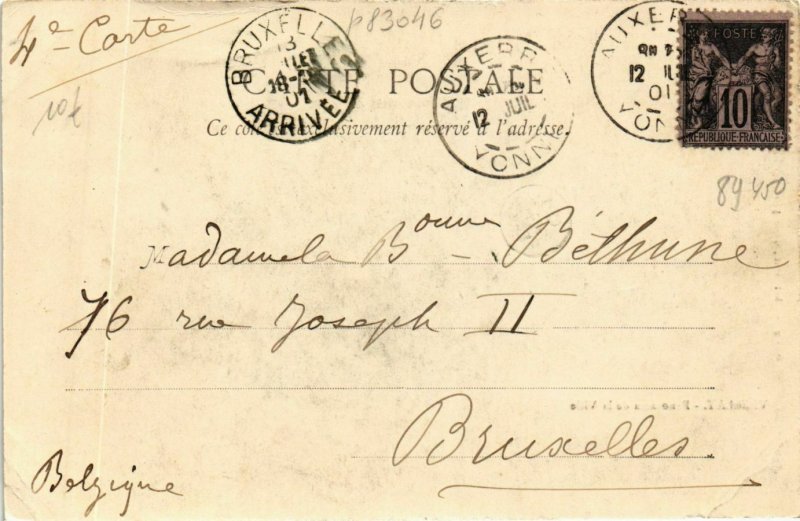 p83046
4e Carte
BRUXELLES
13
ARRIVÉE
AUXERRE
12 JUIL
YONNE
AUXERRE
12
01
YONNE
POSTE
10
RÉPUBLIQUE FRANÇAISE
CARTE POSTALE
Ce côté est exclusivement réservé à l'adresse.
10€
89450
Madame la Bonne Béthune
76 rue Joseph II
Bruxelles
Belgique